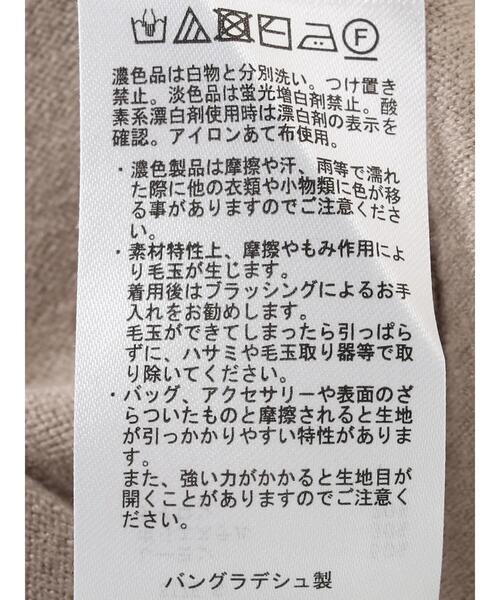 F
濃色品は白物と分別洗い。つけ置き
禁止。淡色品は蛍光増白剤禁止。酸
素系漂白剤使用時は漂白剤の表示を
確認。アイロンあて布使用。
・濃色製品は摩擦や汗、雨等で濡れ
た際に他の衣類や小物類に色が移
る事がありますのでご注意くださ
い。
・素材特性上、摩擦やもみ作用によ
り毛玉が生じます。
着用後はブラッシングによるお手
入れをお勧めします。
毛玉ができてしまったら引っぱら
ずに、ハサミや毛玉取り器等で取
り除いてください。
・バッグ、アクセサリーや表面のざ
らついたものと摩擦されると生地
が引っかかりやすい特性がありま
す。
また、強い力がかかると生地目が
開くことがありますのでご注意く
ださい。
バングラデシュ製